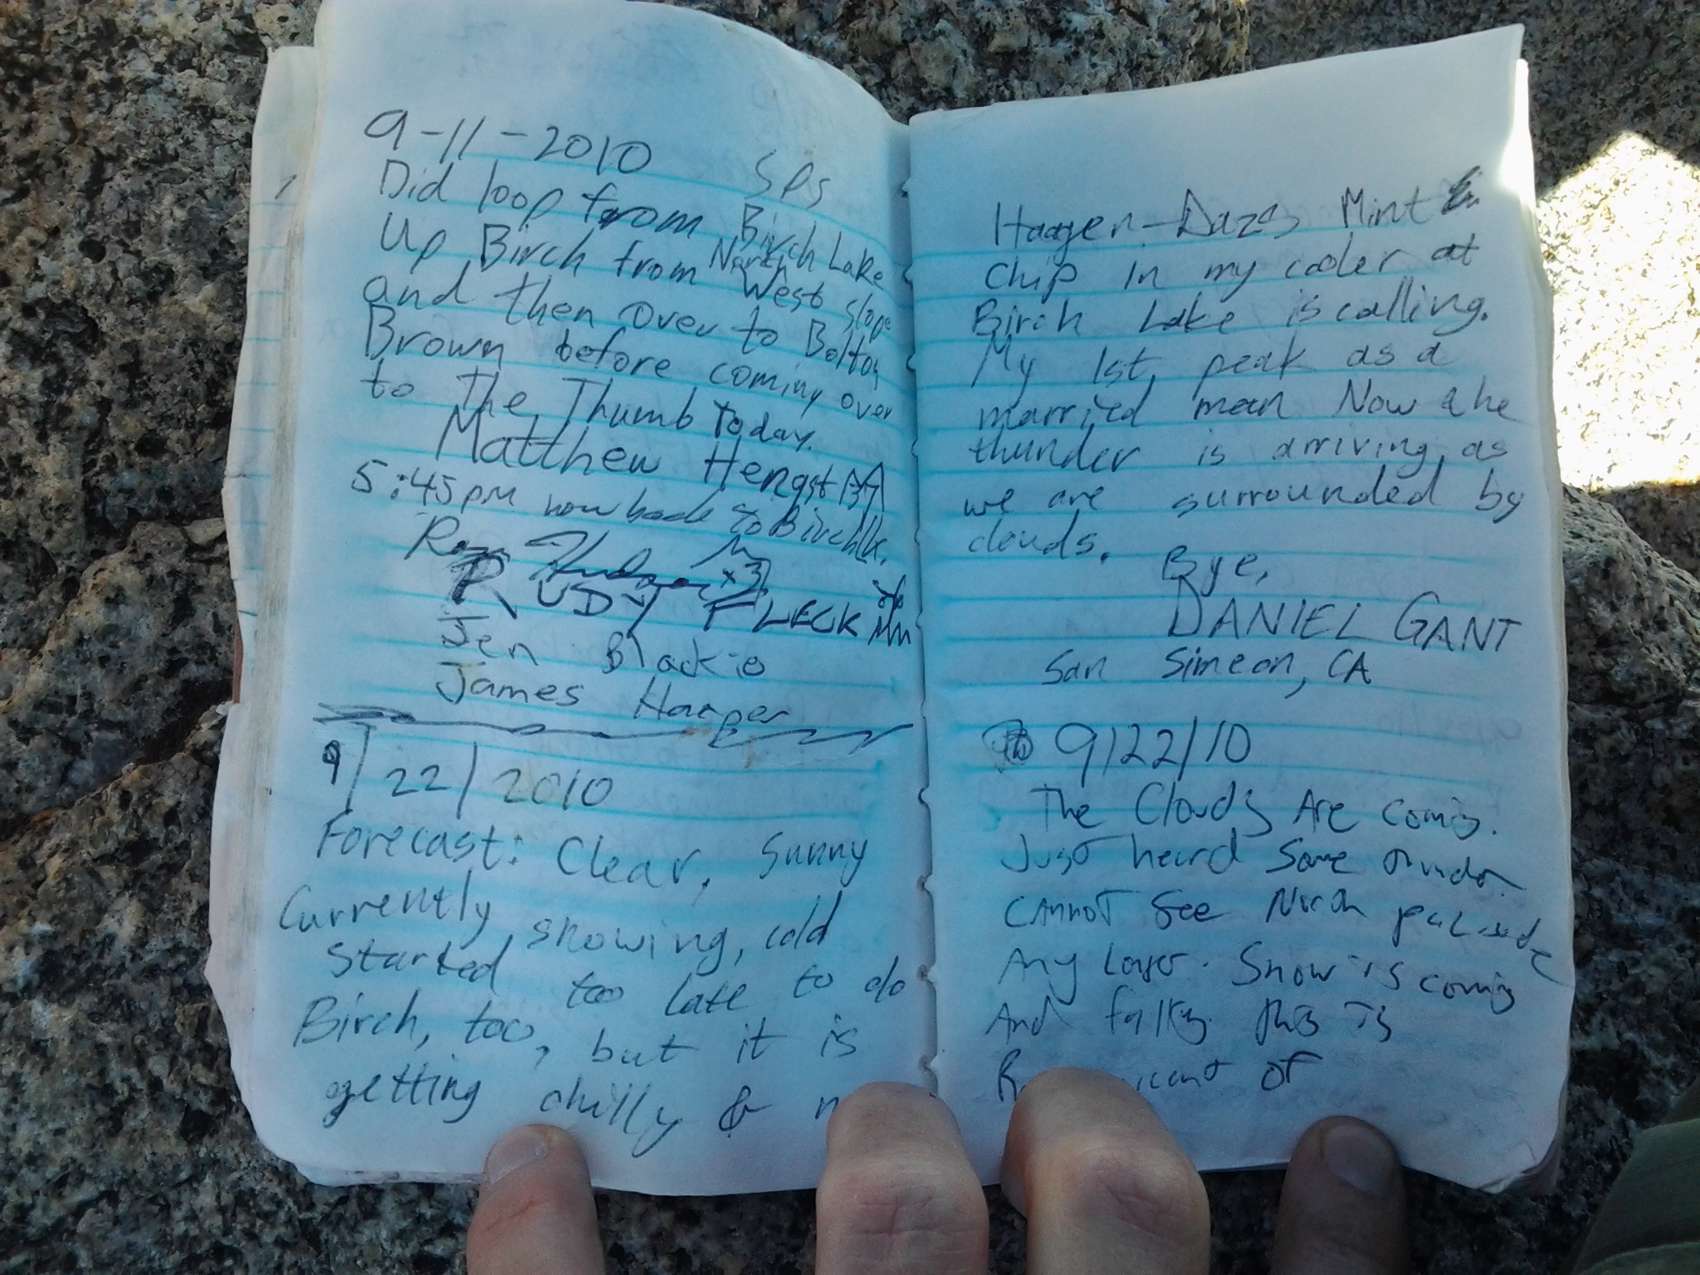 9-11-2010 SPS
Did loop from Birch Lake
Up Birch from North West slope
and then over to Bolton
Brown before coming over
to The Thumb Today.
Matthew Hengst
5:45pm now back to Birch Lk.
RUDY FLECK
Jen Blackie
James Harper
9/22/2010
Forecast: Clear, Sunny
Currently snowing, cold
Started too late to do
Birch, too, but it is
getting chilly &
Haagen-Dazs Mint
chip in my cooler at
Birch Lake is calling.
My 1st peak as a
married man Now the
thunder is arriving as
we are surrounded by
clouds.
Bye,
DANIEL GANT
San Simeon, CA
9/22/10
The Clouds Are coming.
Just heard Some thunder.
CANNOT See North palisade
Any Longer. Snow is coming
And falling. This is
of